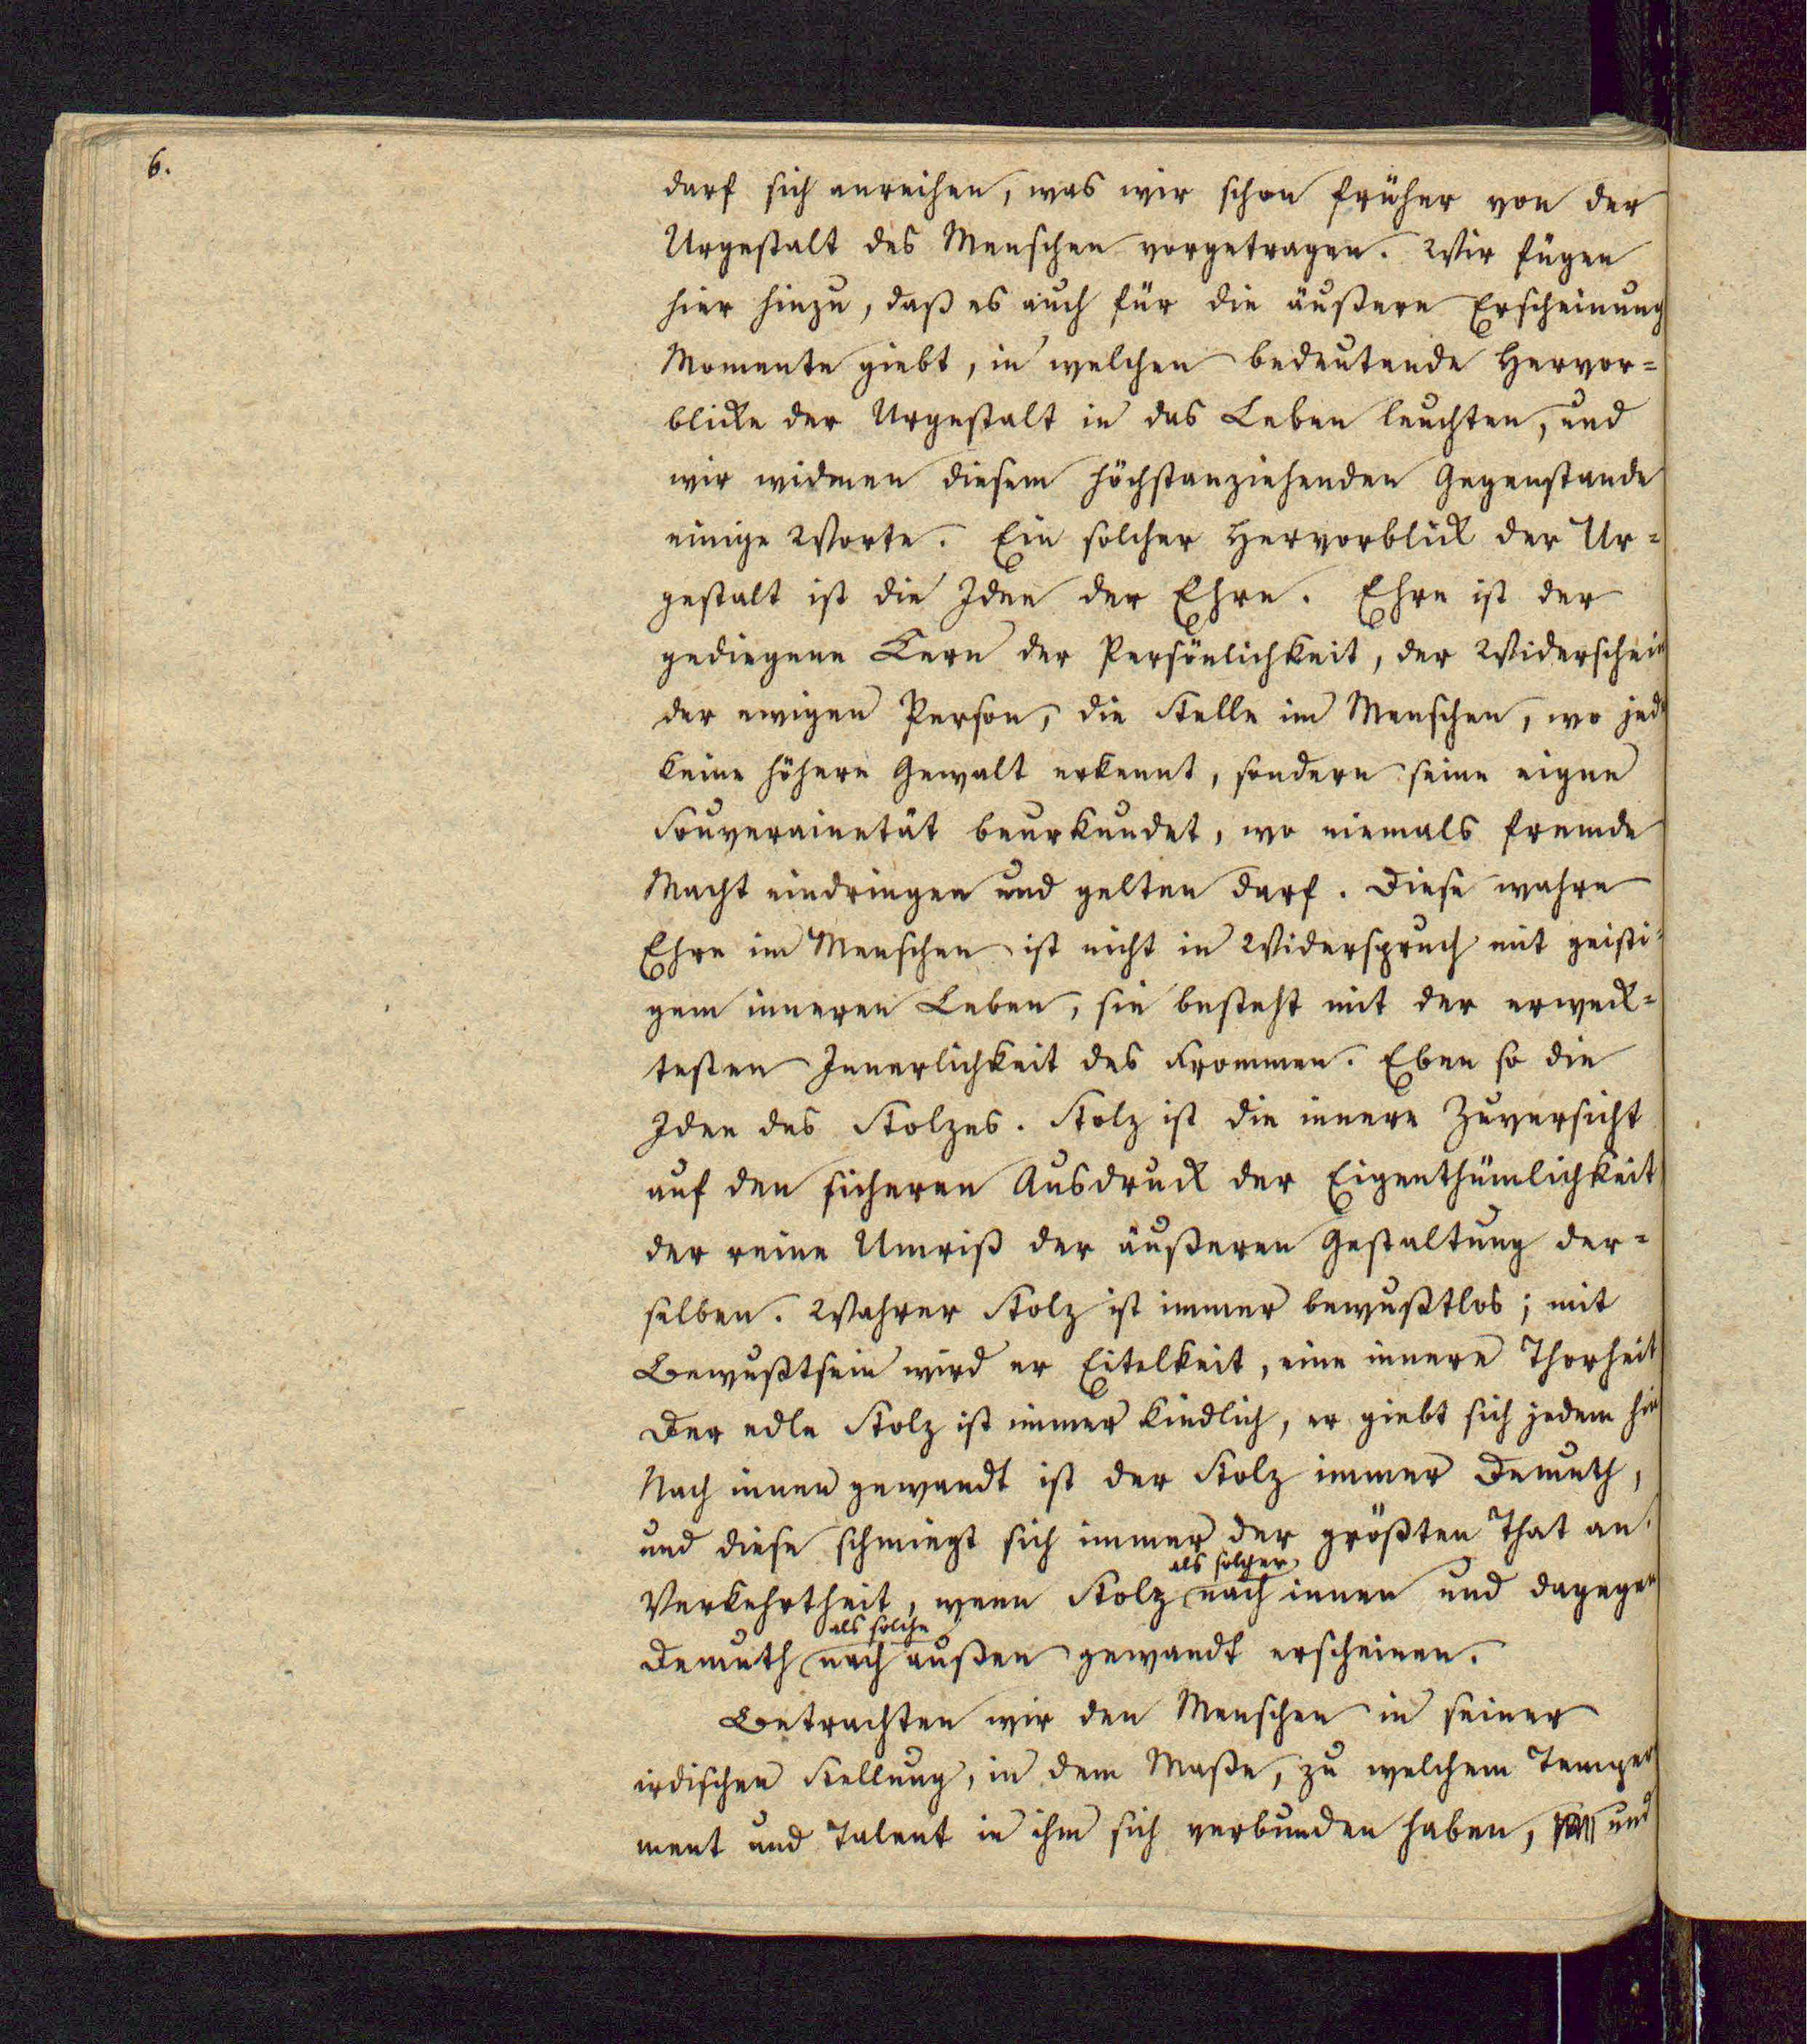 6.
darf sich anreihen, was wir schon früher von der
Urgestalt des Menschen vorgetragen. Wir fügen
hier hinzu, daß es auch für die äußere Erscheinung
Momente giebt, in welchen bedeutende Hervor=
blicke der Urgestalt in das Leben leuchten, und
wir widmen diesem höchstanziehenden Gegenstande
einige Worte. Ein solcher Hervorblick der Ur=
gestalt ist die Idee der Ehre. Ehre ist der
gediegene Kern der Persönlichkeit, der Widerschein
der ewigen Person, die Stelle im Menschen, wo jede
keine höhere Gewalt erkennt, sondern seine eigne
Souverainetät beurkundet, wo niemals fremde
Macht eindringen und gelten darf. Diese wahre
Ehre im Menschen ist nicht in Widerspruch mit geisti=
gem inneren Leben, sie besteht mit der erweck=
testen Innerlichkeit des Frommen. Eben so die
Idee des Stolzes. Stolz ist die innere Zuversicht
auf den sicheren Ausdruck der Eigenthümlichkeit
der reine Umriß der äußeren Gestaltung der=
selben. Wahrer Stolz ist immer bewußtlos; mit
Bewußtsein wird er Eitelkeit, eine innere Thorheit
Der edle Stolz ist immer kindlich, er giebt sich jedem hin
Nach innen gewandt ist der Stolz immer Demuth,
und diese schmiegt sich immer der größten That an.
als solcher
Verkehrtheit, wenn Stolz nach innen und dagegen
als solche
Demuth nach außen gewandt erscheinen.
Betrachten wir den Menschen in seiner
irdischen Stellung, in dem Maße, zu welchem Temper
ment und Talent in ihm sich verbunden haben, und